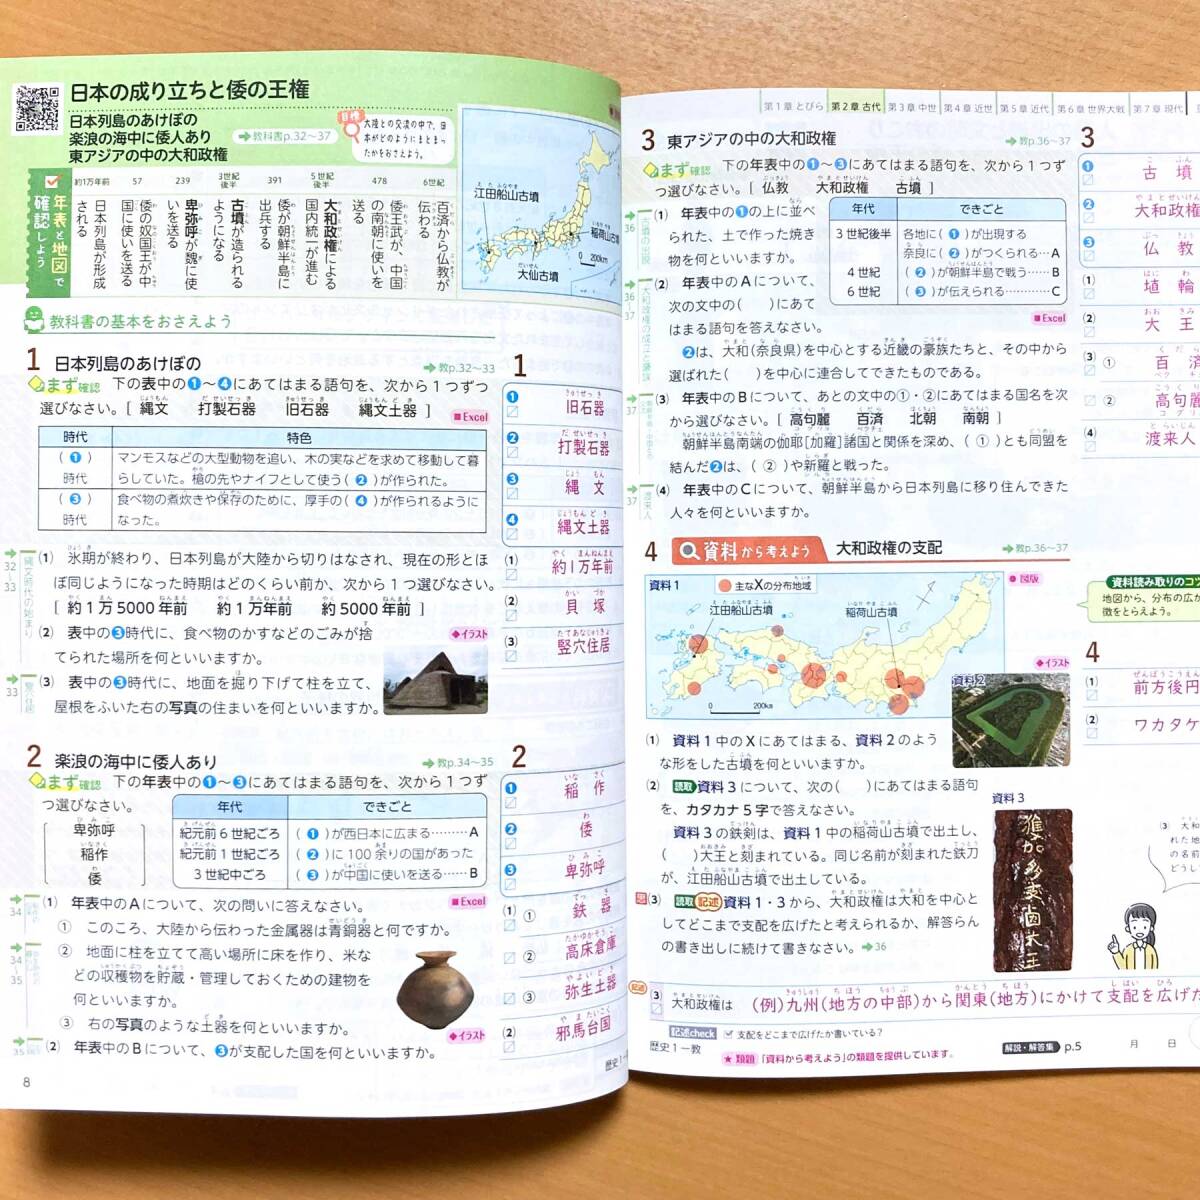 日本の成り立ちと倭の王権
日本列島のあけぼの
楽浪の海中に倭人あり
東アジアの中の大和政権
➔教科書p.32～37
目標
大陸との交流の中で、日
本がどのようにまとまっ
たかをおさえよう。
年表と地図で
確認しよう
約1万年前
日本列島が形成
される
57
倭の奴国王が中
国に使いを送る
239
卑弥呼が魏に使
いを送る
3世紀
後半
古墳が造られる
ようになる
391
倭が朝鮮半島に
出兵する
5世紀
後半
大和政権による
国内統一が進む
478
倭王武が、中国
の南朝に使いを
送る
6世紀
百済から仏教が
伝わる
江田船山古墳
稲荷山古墳
大仙古墳
0 200km
教科書の基本をおさえよう
1 日本列島のあけぼの
➔教p.32～33
まず確認 下の表中の❶～❹にあてはまる語句を、次から1つずつ
選びなさい。[ 縄文 打製石器 旧石器 縄文土器 ]
■Excel
時代 特色
( ❶ )
時代
マンモスなどの大型動物を追い、木の実などを求めて移動して暮
らしていた。槍の先やナイフとして使う( ❷ )が作られた。
( ❸ )
時代
食べ物の煮炊きや保存のために、厚手の( ❹ )が作られるように
なった。
32～33
縄文時代の始まり
(1) 氷期が終わり、日本列島が大陸から切りはなされ、現在の形とほ
ぼ同じようになった時期はどのくらい前か、次から1つ選びなさい。
[ 約1万5000年前 約1万年前 約5000年前 ]
(2) 表中の❸時代に、食べ物のかすなどのごみが捨
てられた場所を何といいますか。
◆イラスト
33
(3) 表中の❸時代に、地面を掘り下げて柱を立て、
屋根をふいた右の写真の住まいを何といいますか。
1
❶ 旧石器
❷ 打製石器
❸ 縄文
❹ 縄文土器
(1) 約1万年前
(2) 貝塚
(3) 竪穴住居
2 楽浪の海中に倭人あり
➔教p.34～35
まず確認 下の年表中の❶～❸にあてはまる語句を、次から1つず
つ選びなさい。
卑弥呼
稲作
倭
年代 できごと
紀元前6世紀ごろ ( ❶ )が西日本に広まる………A
紀元前1世紀ごろ ( ❷ )に100余りの国があった
3世紀中ごろ ( ❸ )が中国に使いを送る……B
■Excel
34
(1) 年表中のAについて、次の問いに答えなさい。
① このころ、大陸から伝わった金属器は青銅器と何ですか。
34～35
② 地面に柱を立てて高い場所に床を作り、米な
どの収穫物を貯蔵・管理しておくための建物を
何といいますか。
③ 右の写真のような土器を何といいますか。
◆イラスト
35
(2) 年表中のBについて、❸が支配した国を何といいますか。
2
❶ 稲作
❷ 倭
❸ 卑弥呼
(1) ① 鉄器
② 高床倉庫
③ 弥生土器
(2) 邪馬台国
8
歴史1－教
第1章 とびら 第2章 古代 第3章 中世 第4章 近世 第5章 近代 第6章 世界大戦 第7章 現代
3 東アジアの中の大和政権
➔教p.36～37
まず確認 下の年表中の❶～❸にあてはまる語句を、次から1つず
つ選びなさい。[ 仏教 大和政権 古墳 ]
36
(1) 年表中の❶の上に並べ
られた、土で作った焼き
物を何といいますか。
年代 できごと
3世紀後半 各地に( ❶ )が出現する
奈良に( ❷ )がつくられる…A
4世紀 ( ❷ )が朝鮮半島で戦う……B
6世紀 ( ❸ )が伝えられる…………C
■Excel
36～37
大和政権の成立と豪族
(2) 年表中のAについて、
次の文中の( )にあて
はまる語句を答えなさい。
❷は、大和(奈良県)を中心とする近畿の豪族たちと、その中から
選ばれた( )を中心に連合してできたものである。
37
(3) 年表中のBについて、あとの文中の①・②にあてはまる国名を次
から選びなさい。[ 高句麗 百済 北朝 南朝 ]
朝鮮半島南端の伽耶[加羅]諸国と関係を深め、( ① )とも同盟を
結んだ❷は、( ② )や新羅と戦った。
37
渡来人
(4) 年表中のCについて、朝鮮半島から日本列島に移り住んできた
人々を何といいますか。
3
❶ 古墳
❷ 大和政権
❸ 仏教
(1) 埴輪
(2) 大王
(3) ① 百済
② 高句麗
(4) 渡来人
4 資料から考えよう 大和政権の支配
➔教p.36～37
資料1
主なXの分布地域
江田船山古墳
稲荷山古墳
0 200km
●図版
◆イラスト
資料2
資料読み取りのコツ
地図から、分布の広が
徴をとらえよう。
(1) 資料1中のXにあてはまる、資料2のよう
な形をした古墳を何といいますか。
(2) 読取 資料3について、次の( )にあてはまる語句
を、カタカナ5字で答えなさい。
資料3の鉄剣は、資料1中の稲荷山古墳で出土し、
( )大王と刻まれている。同じ名前が刻まれた鉄刀
が、江田船山古墳で出土している。
(3) 読取 記述 資料1・3から、大和政権は大和を中心と
してどこまで支配を広げたと考えられるか、解答らん
の書き出しに続けて書きなさい。➔36
資料3
獲加多支鹵大王
4
(1) 前方後円
(2) ワカタケ
(3) 大和
れた地
の名前
どうい
記述
(3) 大和政権は (例)九州(地方の中部)から関東(地方)にかけて支配を広げた
記述check 支配をどこまで広げたか書いている?
歴史1－教
★類題 「資料から考えよう」の類題を提供しています。
解説・解答集 p.5
月 日